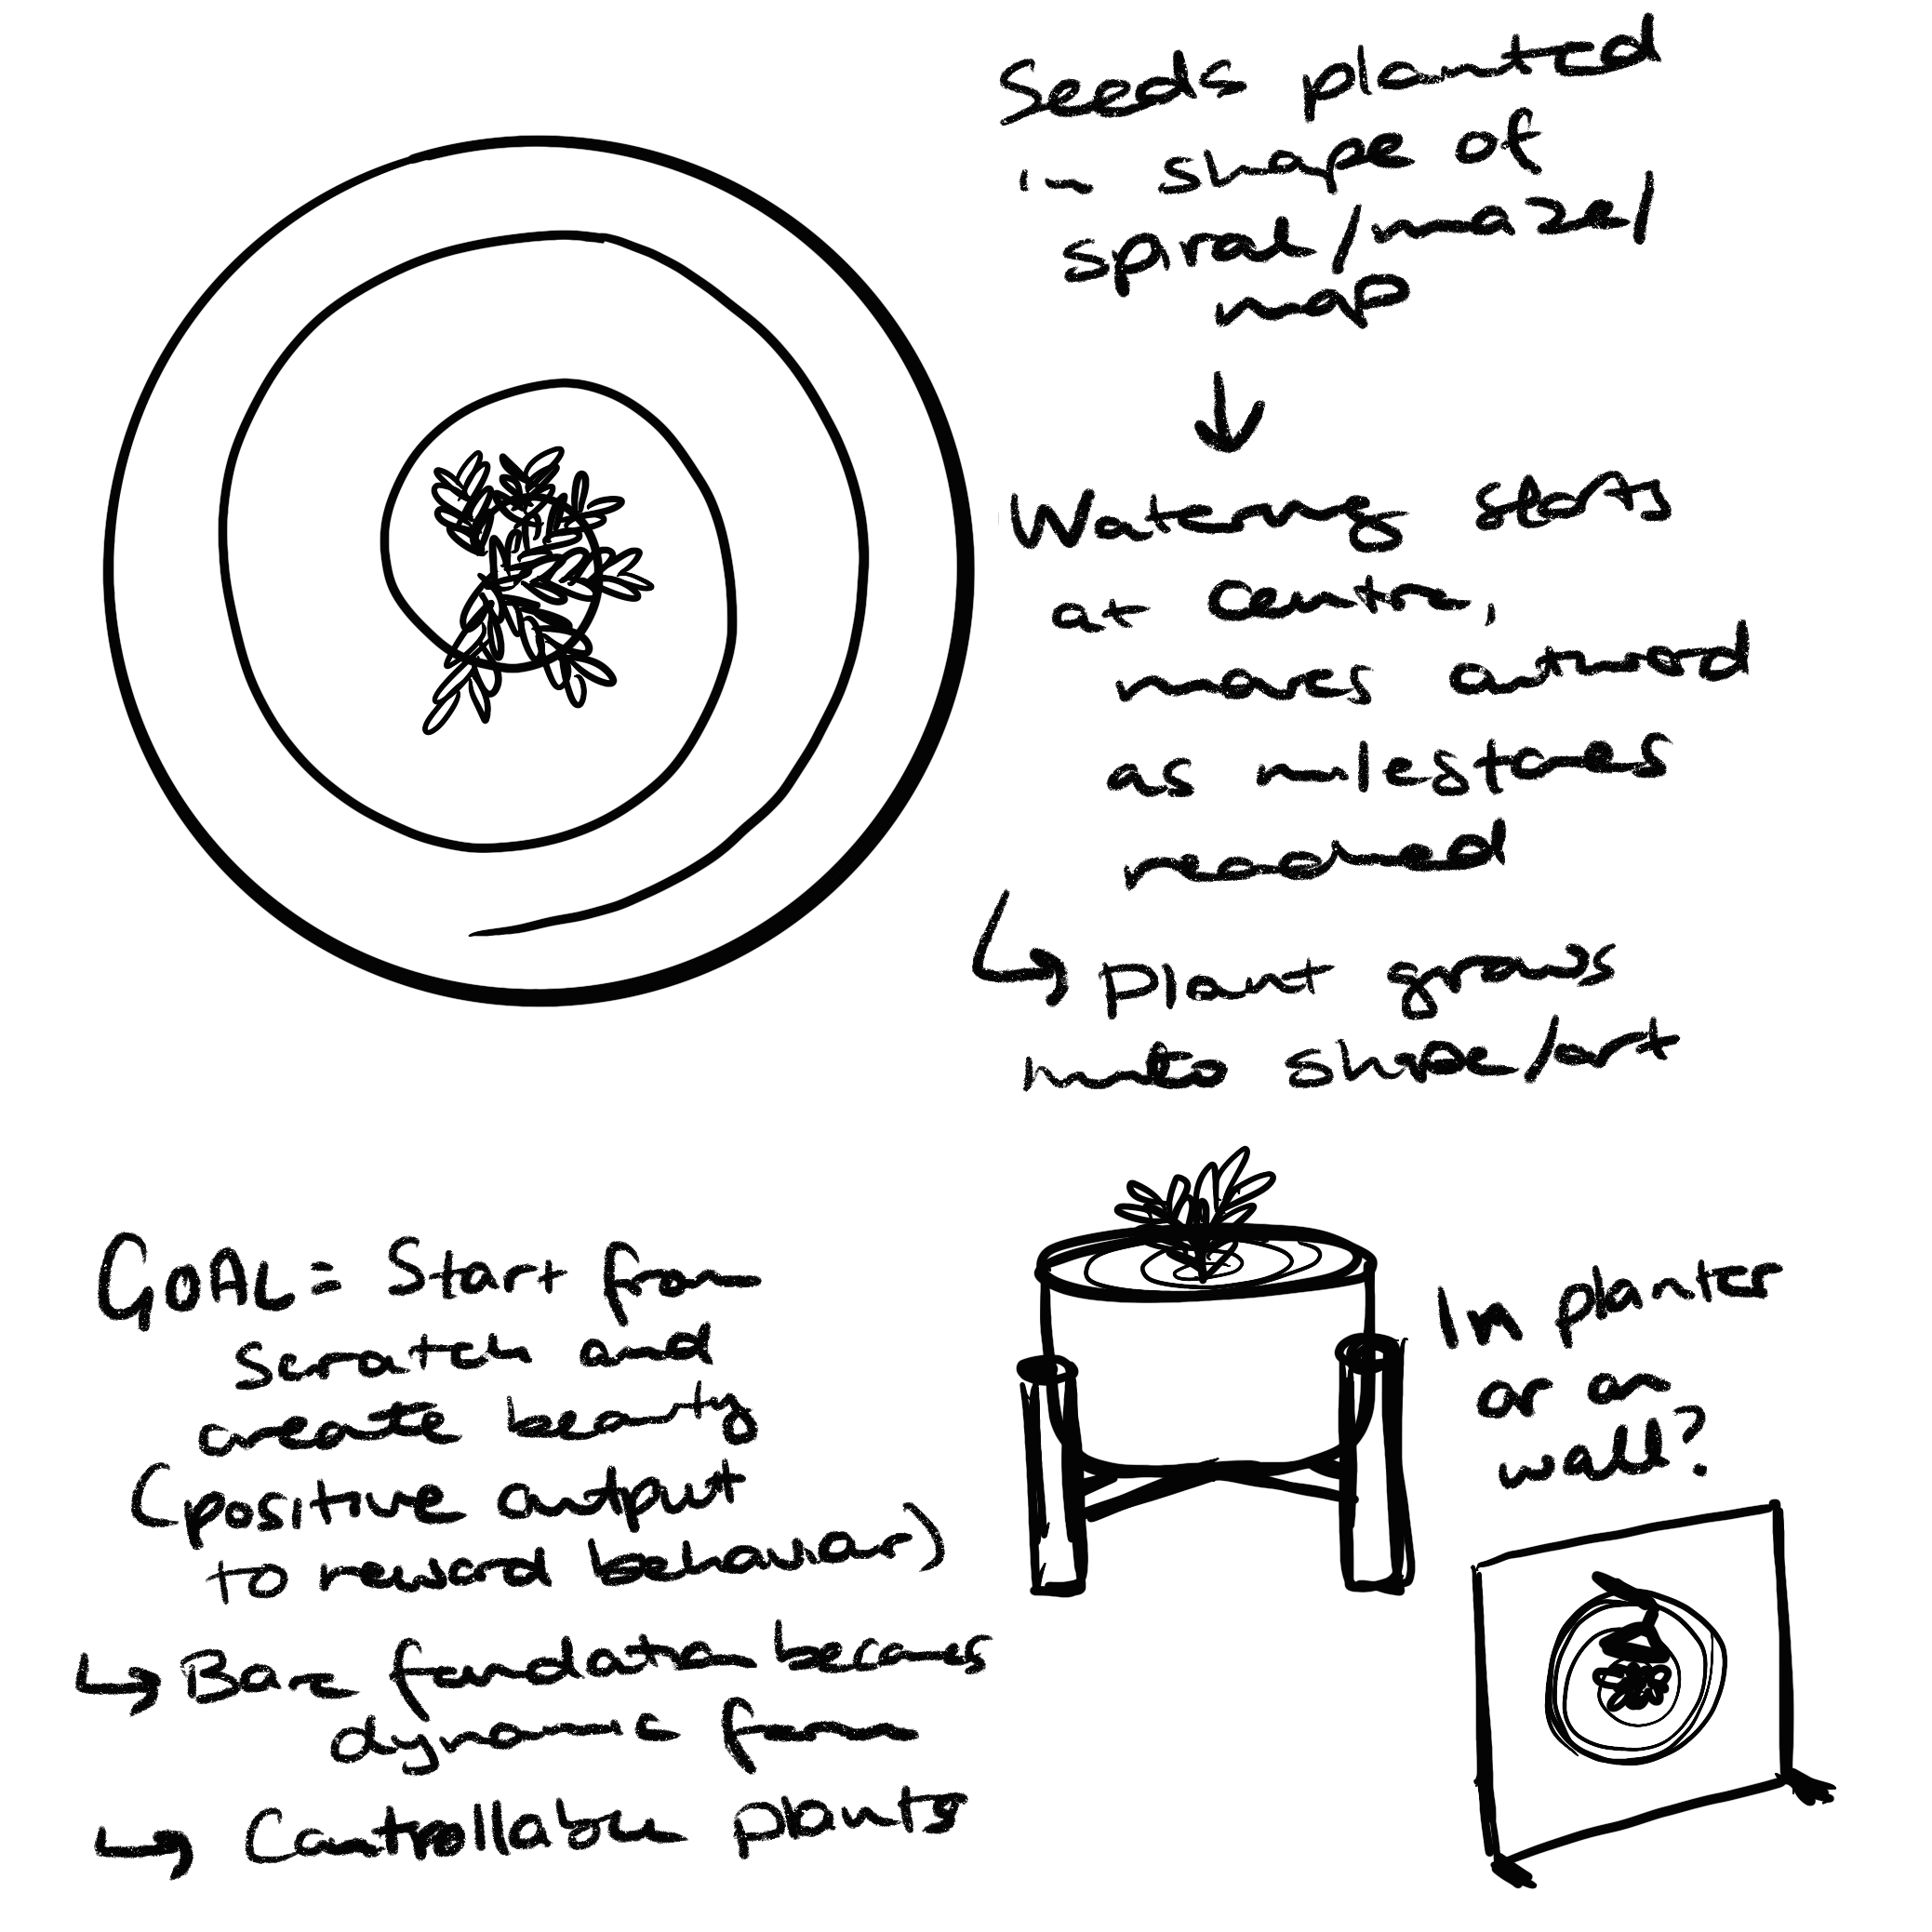 Seeds planted
in shape of
spiral/maze/
map
Watering starts
at centre,
moves outward
as milestones
reached
Plant grows
into shape/art
GOAL = Start from
scratch and
create beauty
(positive output
to reward behaviour)
Bare foundation becomes
dynamic form
Controllable plants
In planter
or on
wall?